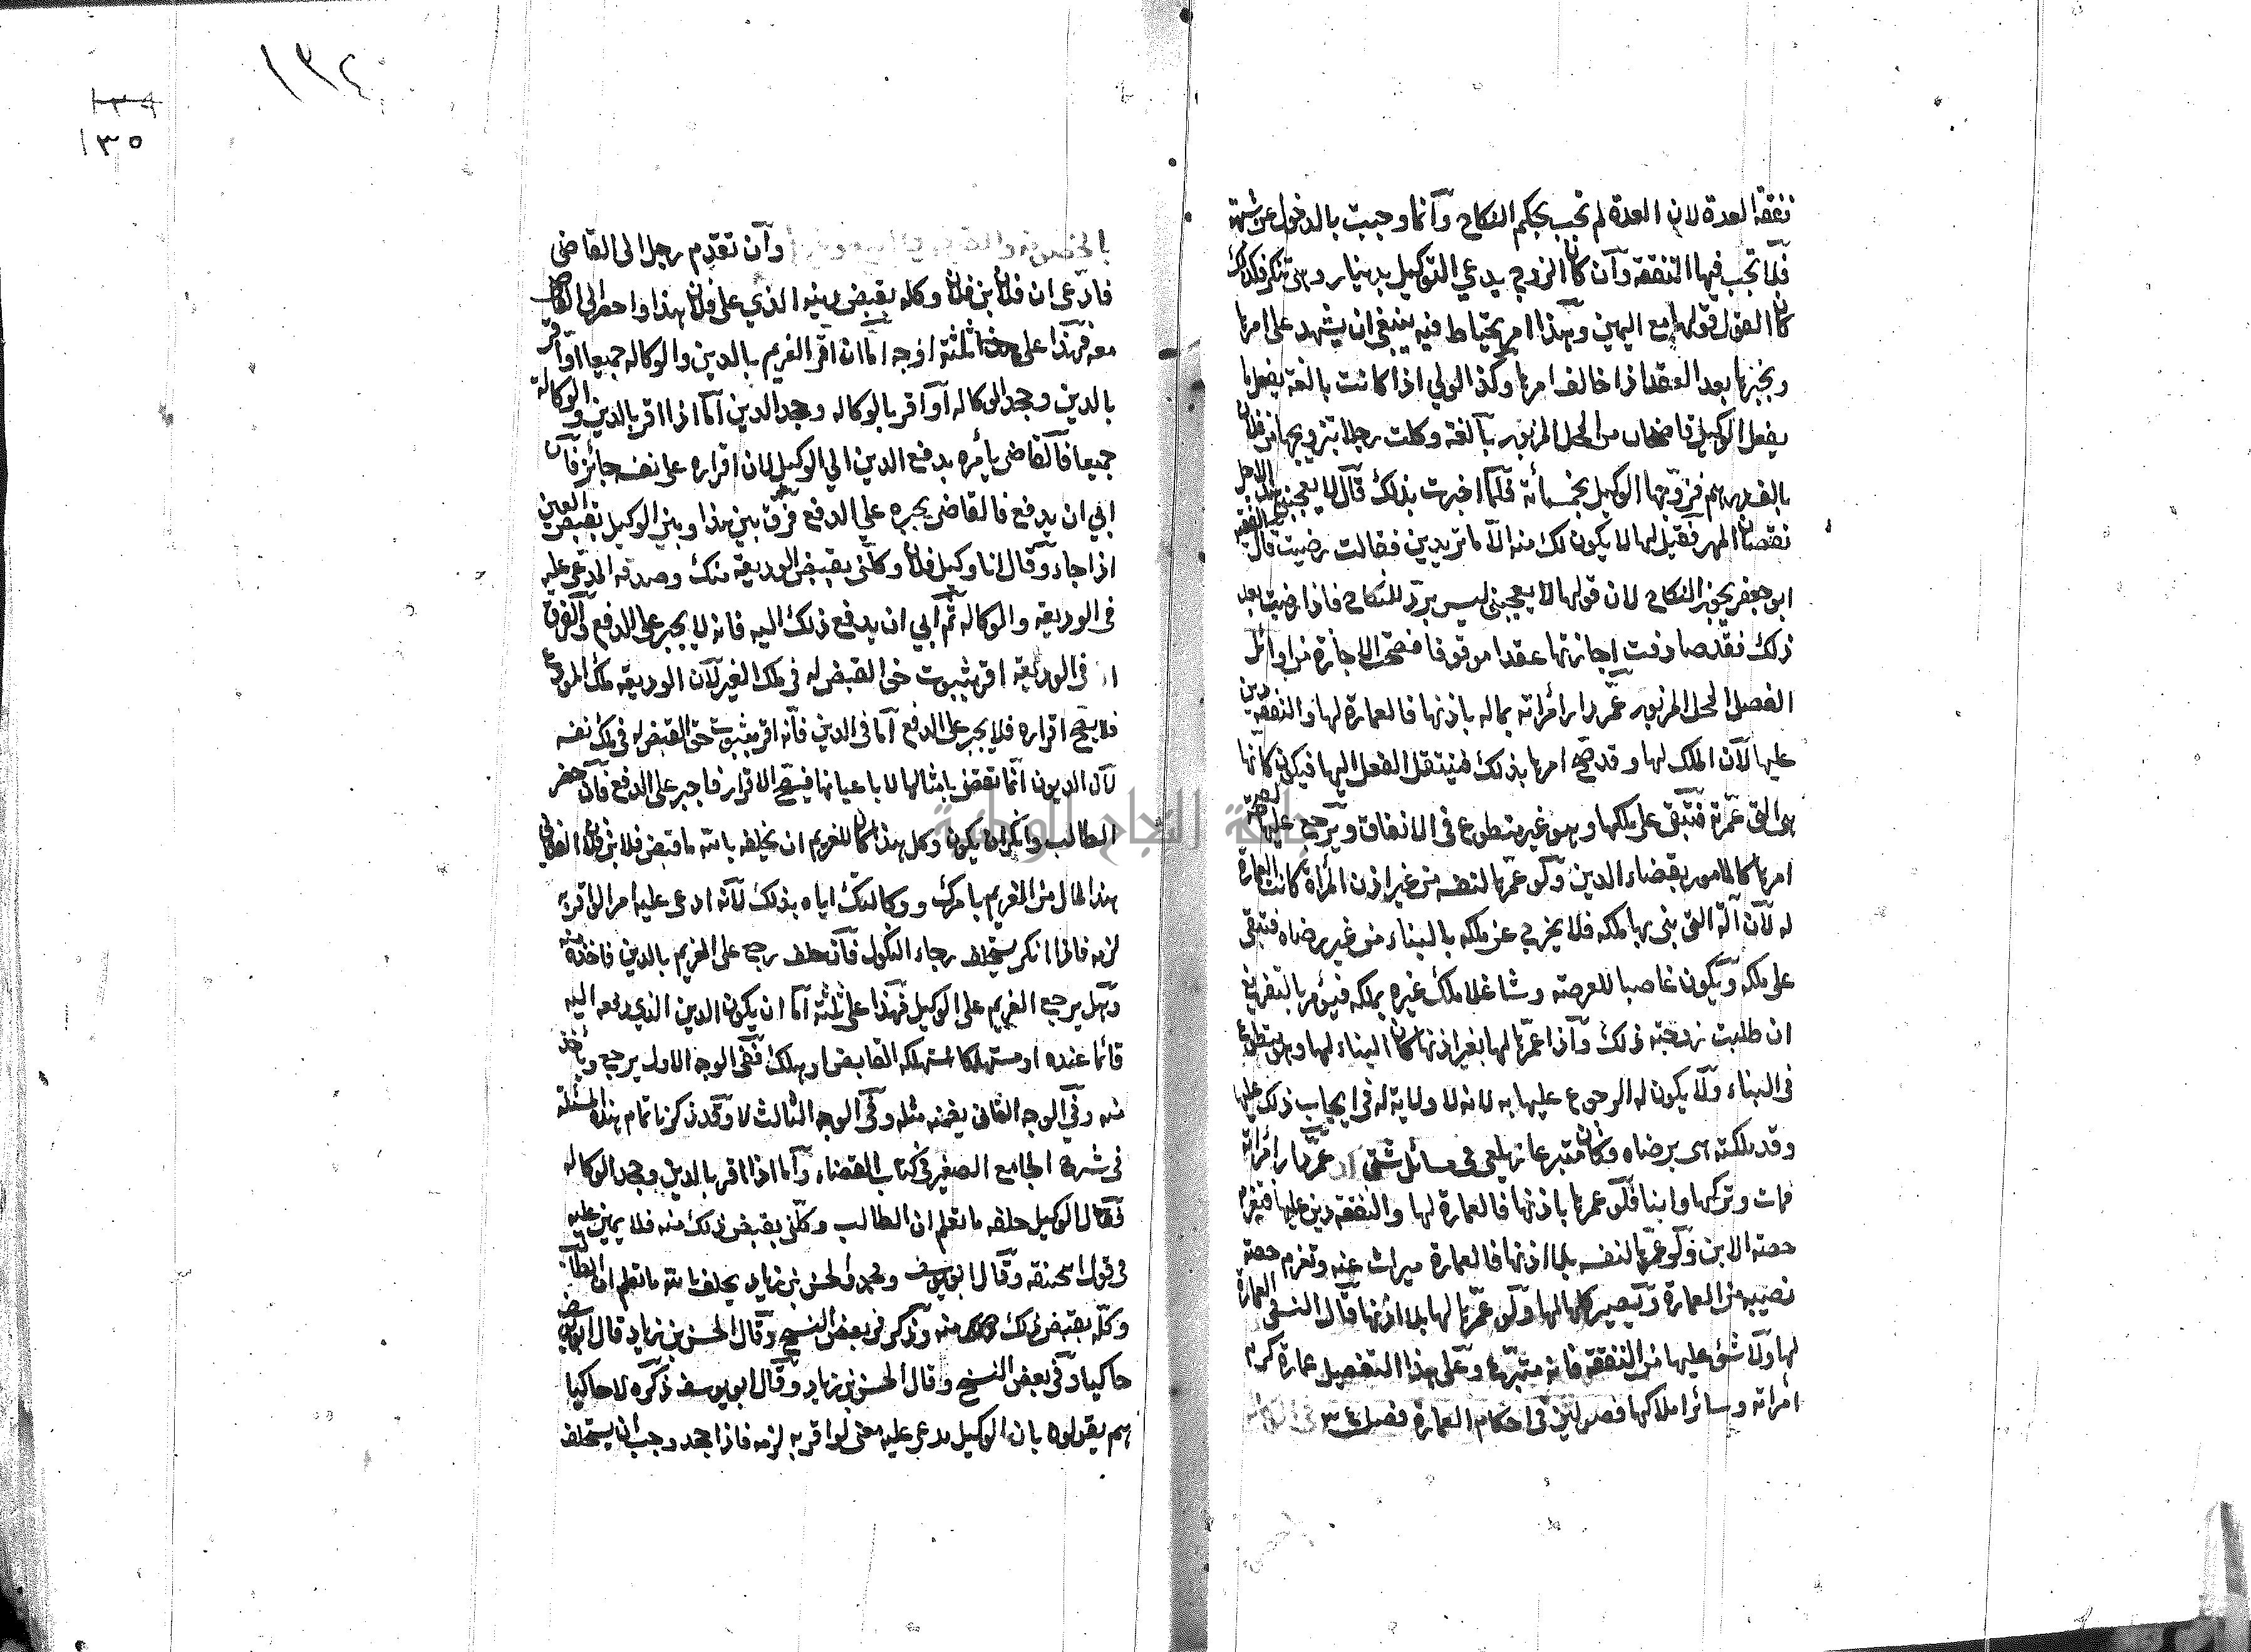 نفقة العدة لان العدة لم تجب بحكم النكاح وانما وجبت بالدخول عن شبهة
فلا تجب فيها النفقة وان كان الزوج يدعي التوكيل بدينار وهي تنكر فكذلك
كان القول قولها مع اليمين وهذا امر يحتاط فيه ينبغي ان يشهد على امرها
ويخبرها بعد العقد اذا خالف امرها وكذا الولي اذا كانت بالغة يفعل ما
يفعل الوكيل قاضيخان من المحل المزبور بالغة وكلت رجلا بتزويجها من فلان
بالف درهم فزوجها الوكيل بخمسمائة فلما اخبرت بذلك قالت لا يعجبني هذا لاجل
نقصان المهر فقيل لها لا يكون لك منه الا ما تريدين فقالت رضيت قال الفقيه
ابو جعفر يجوز النكاح لان قولها لا يعجبني ليس برد للنكاح فاذا رضيت بعد
ذلك فقد صادفت اجازتها عقدا موقوفا فصحت الاجازة من اوائل
الفصل المحل المزبور عمر دار امرأته بماله باذنها فالعمارة لها والنفقة دين
عليها لان الملك لها وقد صح امرها بذلك فينتقل الفعل اليها فيكون كانها
هي التي عمرته فتبقى على ملكها وهو غير متطوع في الانفاق ويرجع عليها لصحة
امرها كالمامور بقضاء الدين ولو عمرها لنفسه من غير اذن المرأة كانت العمارة
له لان آلة التي بنى بها ملكه فلا يخرج عن ملكه بالبناء من غير رضاه فتبقى
على ملكه ويكون غاصبا للعرصة وشاغلا ملك غيره بملكه فيؤمر بالتفريغ
ان طلبت زوجته ذلك واذا عمرها لها بغير اذنها كان البناء لها وهو متطوع
في البناء ولا يكون له الرجوع عليها به لانه لا ولاية له في ايجاب ذلك عليها
وقد ملكته هي برضاه وكان متبرعا زيلعي في مسائل شتى عمر دار امرأته
فمات وتركها وابنا فلو عمرها باذنها فالعمارة لها والنفقة دين عليها فتغرم
حصة الابن ولو عمرها لنفسه بلا اذنها فالعمارة ميراث عنه وتغرم حصة
نصيبه من العمارة ويصير كلها لها ولو عمرها لها بلا اذنها قال النسفي العمارة
لها ولا شئ عليها من النفقة فانه متبرع وعلى هذا التفصيل عمارة كرم
امرأته وسائر املاكها فصولين في احكام العمارة فصل ٣٤
١٣٤
١٣٥
وان تقدم رجل الى القاضي
فادعى ان فلان بن فلان وكله بقبض دينه الذي على فلان هذا واحضر الى القاضي
معه فهذا على ثلثة اوجه اما ان اقر الغريم بالدين والوكالة جميعا او اقر
بالدين وجحد الوكالة او اقر بالوكالة وجحد الدين اما اذا اقر بالدين والوكالة
جميعا فالقاضي يأمره بدفع الدين الى الوكيل لان اقراره على نفسه جائز فان
ابى ان يدفع فالقاضي يجبره على الدفع فرق بين هذا وبين الوكيل بقبض العين
اذا جاء وقال انا وكيل فلان وكلني بقبض الوديعة منك وصدقه المدعى عليه
في الوديعة والوكالة ثم ابى ان يدفع ذلك اليه فانه لا يجبر على الدفع والفرق
ان في الوديعة اقر بثبوت حق القبض له في ملك الغير لان الوديعة ملك المودع
فلا يصح اقراره فلا يجبر على الدفع اما في الدين فانه اقر بثبوت حق القبض له في ملك نفسه
لان الديون انما تقضى بامثالها لا باعيانها فيصح الاقرار فاجبر على الدفع فان حضر
الطالب وانكر ان يكون وكل هذا كان للغريم ان يحلفه بالله ما قبض فلان بن فلان الفلاني
هذا المال من الغريم بامرك ووكالتك اياه بذلك لانه ادعى عليه امرا لو اقر به
لزمه فاذا انكر يستحلف رجاء النكول فان حلف رجع على الغريم بالدين فاخذه منه
وهل يرجع الغريم على الوكيل فهذا على ثلثة اما ان يكون الدين الذي دفعه اليه
قائما عنده او مستهلكا استهلكه القابض او هلك ففي الوجه الاول يرجع ويأخذ
منه وفي الوجه الثاني يضمنه مثله وفي الوجه الثالث لا وقد ذكرنا تمام هذه المسئلة
في شرح الجامع الصغير في كتاب القضاء واما اذا اقر بالدين وجحد الوكالة
فقال الوكيل حلفه ما تعلم ان الطالب وكلني بقبض ذلك منه فلا يمين عليه
في قول ابي حنيفة وقال ابو يوسف ومحمد والحسن بن زياد يحلف بالله ما تعلم ان الطالب
وكله بقبض ذلك منه وذكر في بعض النسخ وقال الحسن بن زياد قال ابو يوسف
حاكيا وفي بعض النسخ وقال الحسن بن زياد وقال ابو يوسف ذكره لا حاكيا
هم يقولون بان الوكيل يدعي عليه معنى لو اقر به لزمه فاذا جحد وجب ان يستحلف
جامعة النجاح الوطنية